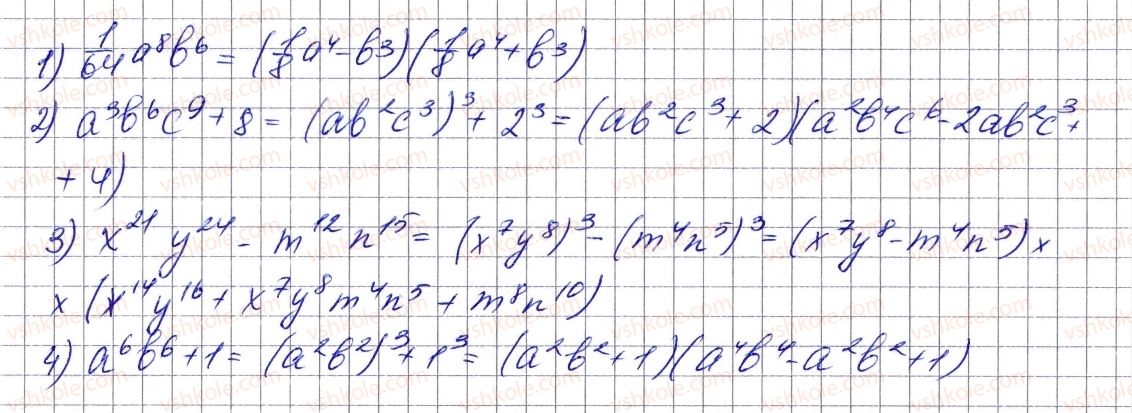 1) 1/64 a⁸b⁶ = (1/8 a⁴ - b³)(1/8 a⁴ + b³)
2) a³b⁶c⁹ + 8 = (ab²c³)³ + 2³ = (ab²c³ + 2)(a²b⁴c⁶ - 2ab²c³ +
+ 4)
3) x²¹ y²⁴ - m¹² n¹⁵ = (x⁷y⁸)³ - (m⁴n⁵)³ = (x⁷y⁸ - m⁴n⁵) ×
× (x¹⁴y¹⁶ + x⁷y⁸m⁴n⁵ + m⁸n¹⁰)
4) a⁶b⁶ + 1 = (a²b²)³ + 1³ = (a²b² + 1)(a⁴b⁴ - a²b² + 1)